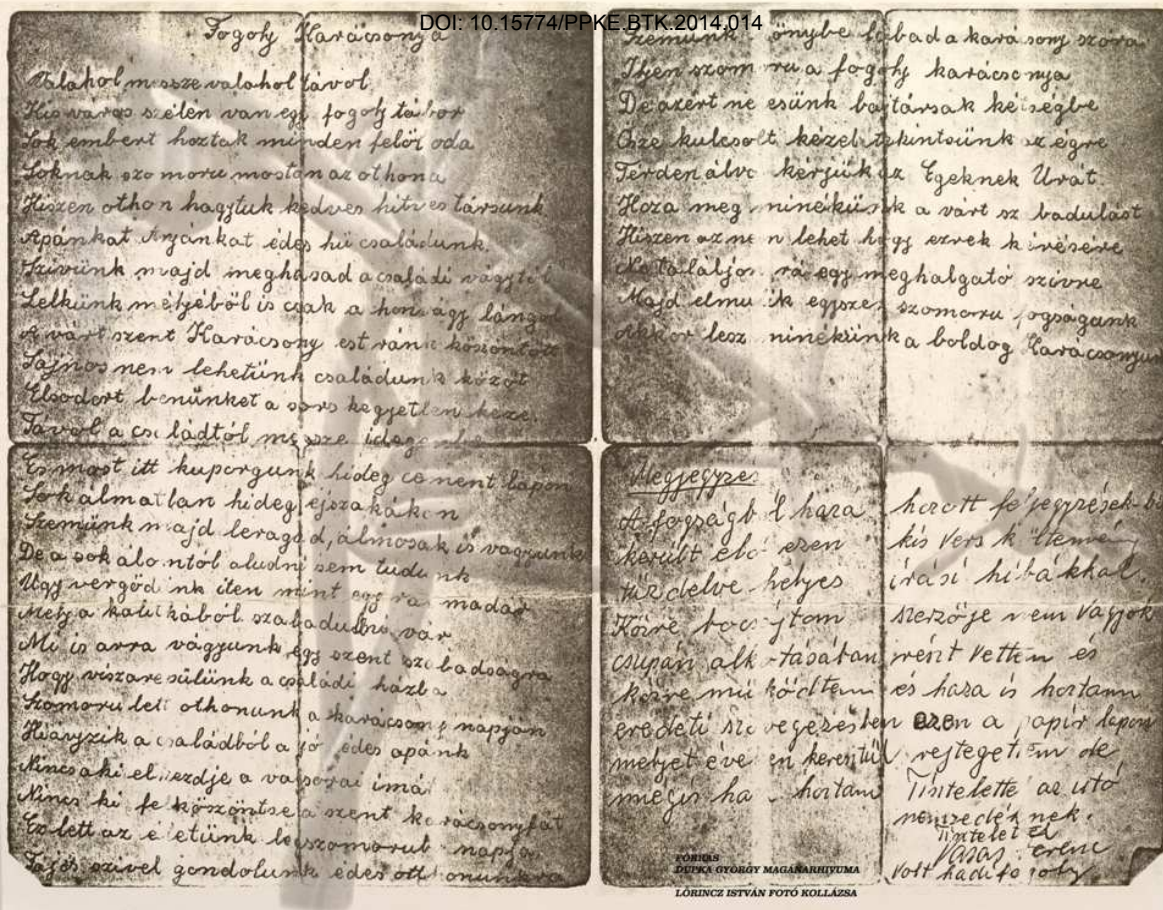 DOI: 10.15774/PPKE.BTK.2014.014
Fogoly Karácsonya
Valahol messze valahol távol
Kis varos szélén van egy fogoly tábor
Sok embert hoztak minden felöl oda
Soknak szomoru mostan az othona
Hiszen othon hagytuk kedves hitves társunk
Apánkat Anyánkat édes hü családunk.
Szivünk majd meghasad a családi vágytól
Lelkünk mélyéböl is csak a honvágy lángol
A várt szent Karácsony est ránk köszöntött
Sajnos nem lehetünk családunk közöt
Elsodort benünket a sors kegyetlen keze.
Távol a családtól messze
És most itt kuporgunk hideg cement lapon
Sok álmatlan hideg éjszakákon
Szemünk majd leragad, álmosak is vagyunk
De a sok álomtól aludni sem tudunk
Ugy vergödünk iten mint egy rab madár
Mely a kalitkából szabadulni vár
Mi is arra vágyunk egy szent szabadságra
Hogy viszare sülünk a családi házba
Szomoru lett othonunk a karácsony napján
Hiányzik a családból a jó édes apánk
Nincs aki elkezdje a vacsorai imát
Nincs ki fel köszöntse a szent karácsonyfát
Ez lett az életünk legszomorub napja
Fájós szivel gondolunk édes otthonunkra
Szemünk könybe lábad a karácsony szora
Ilyen szomoru a fogoly karácsonya
De azért ne esünk bajtársak kétségbe
Ösze kulcsolt kézel tekintsünk az égre
Térden álva kérjük az Egeknek Urát.
Hoza meg minékünk a várt szabadulást
Hiszen az nem lehet hogy ezrek kérésére
Ne találjon rá egy meghalgató szivre
Majd elmulik egyszer szomoru fogságunk
Akkor lesz minékünk a boldog Karácsonyunk
Megjegyzés
A fogságból haza hozott feljegyzések
került elö ezen kis vers költemény
tüzdelve helyes irási hibákkal.
Közre bocsájtom szerzöje nem vagyok
csupán alkotásában részt vettem és
közre müködtem és haza is hoztam
eredeti szövegezésben ezen a papir lapon
melyet éveken keresztül rejtegettem de
mégis haza hoztam Tisztelette az utó
nemzedéknek.
Tisztelettel
Ferenc
volt hadifogoly.
FORRÁS
DUPKA GYÖRGY MAGÁNARHIVUMA
LŐRINCZ ISTVÁN FOTÓ KOLLÁZSA